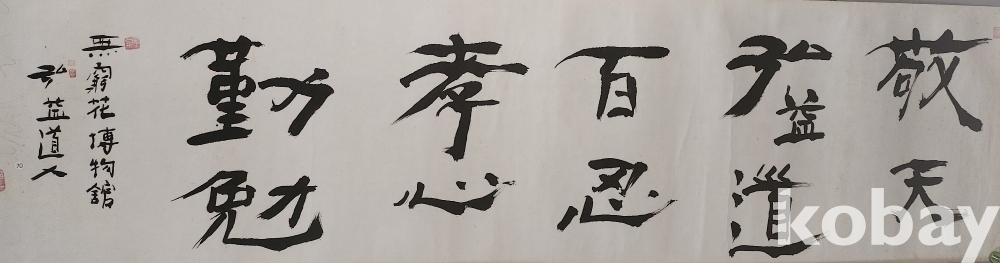 敬天
弘益道
百忍
孝心
勤勉
無窮花博物館
弘益道人
70
kobay